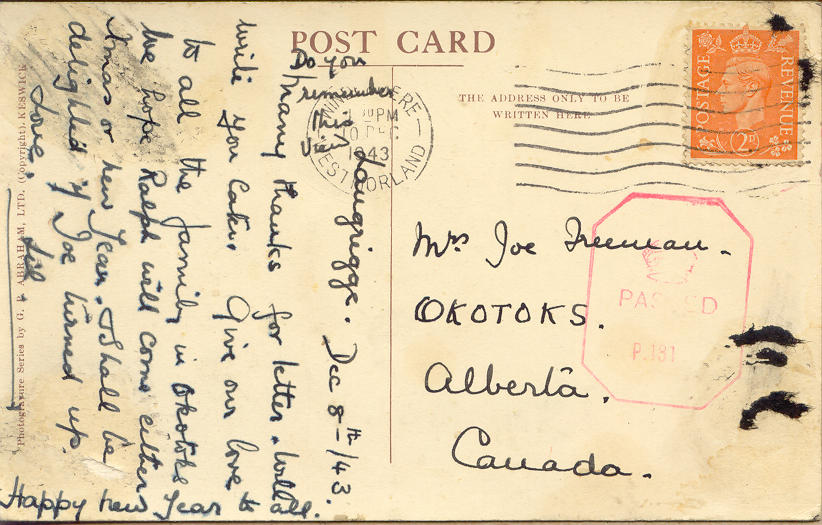 POST CARD
THE ADDRESS ONLY TO BE
WRITTEN HERE
POSTAGE REVENUE
2D
PM
10 DEC
1943
WESTMORLAND
Do you
remember
this
View
Langrigge. Dec 8th/43.
Many thanks for letter. Will
write you later. Give our love
to all the family in Okotoks
We hope Ralph will come either
Xmas or New Year. I shall be
delighted if Joe turned up.
Love, Lil.
Happy New Year to all.
Mrs Joe Freeman.
OKOTOKS.
Alberta.
Canada.
PASSED
P.131
Photogravure Series by G. P. ABRAHAM, LTD. (Copyright), KESWICK